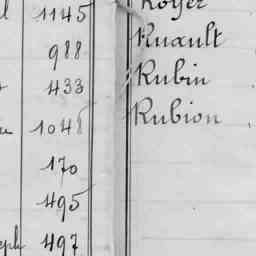 1145 Royer
988 Ruault
433 Rubin
1048 Rubion
170
495
497